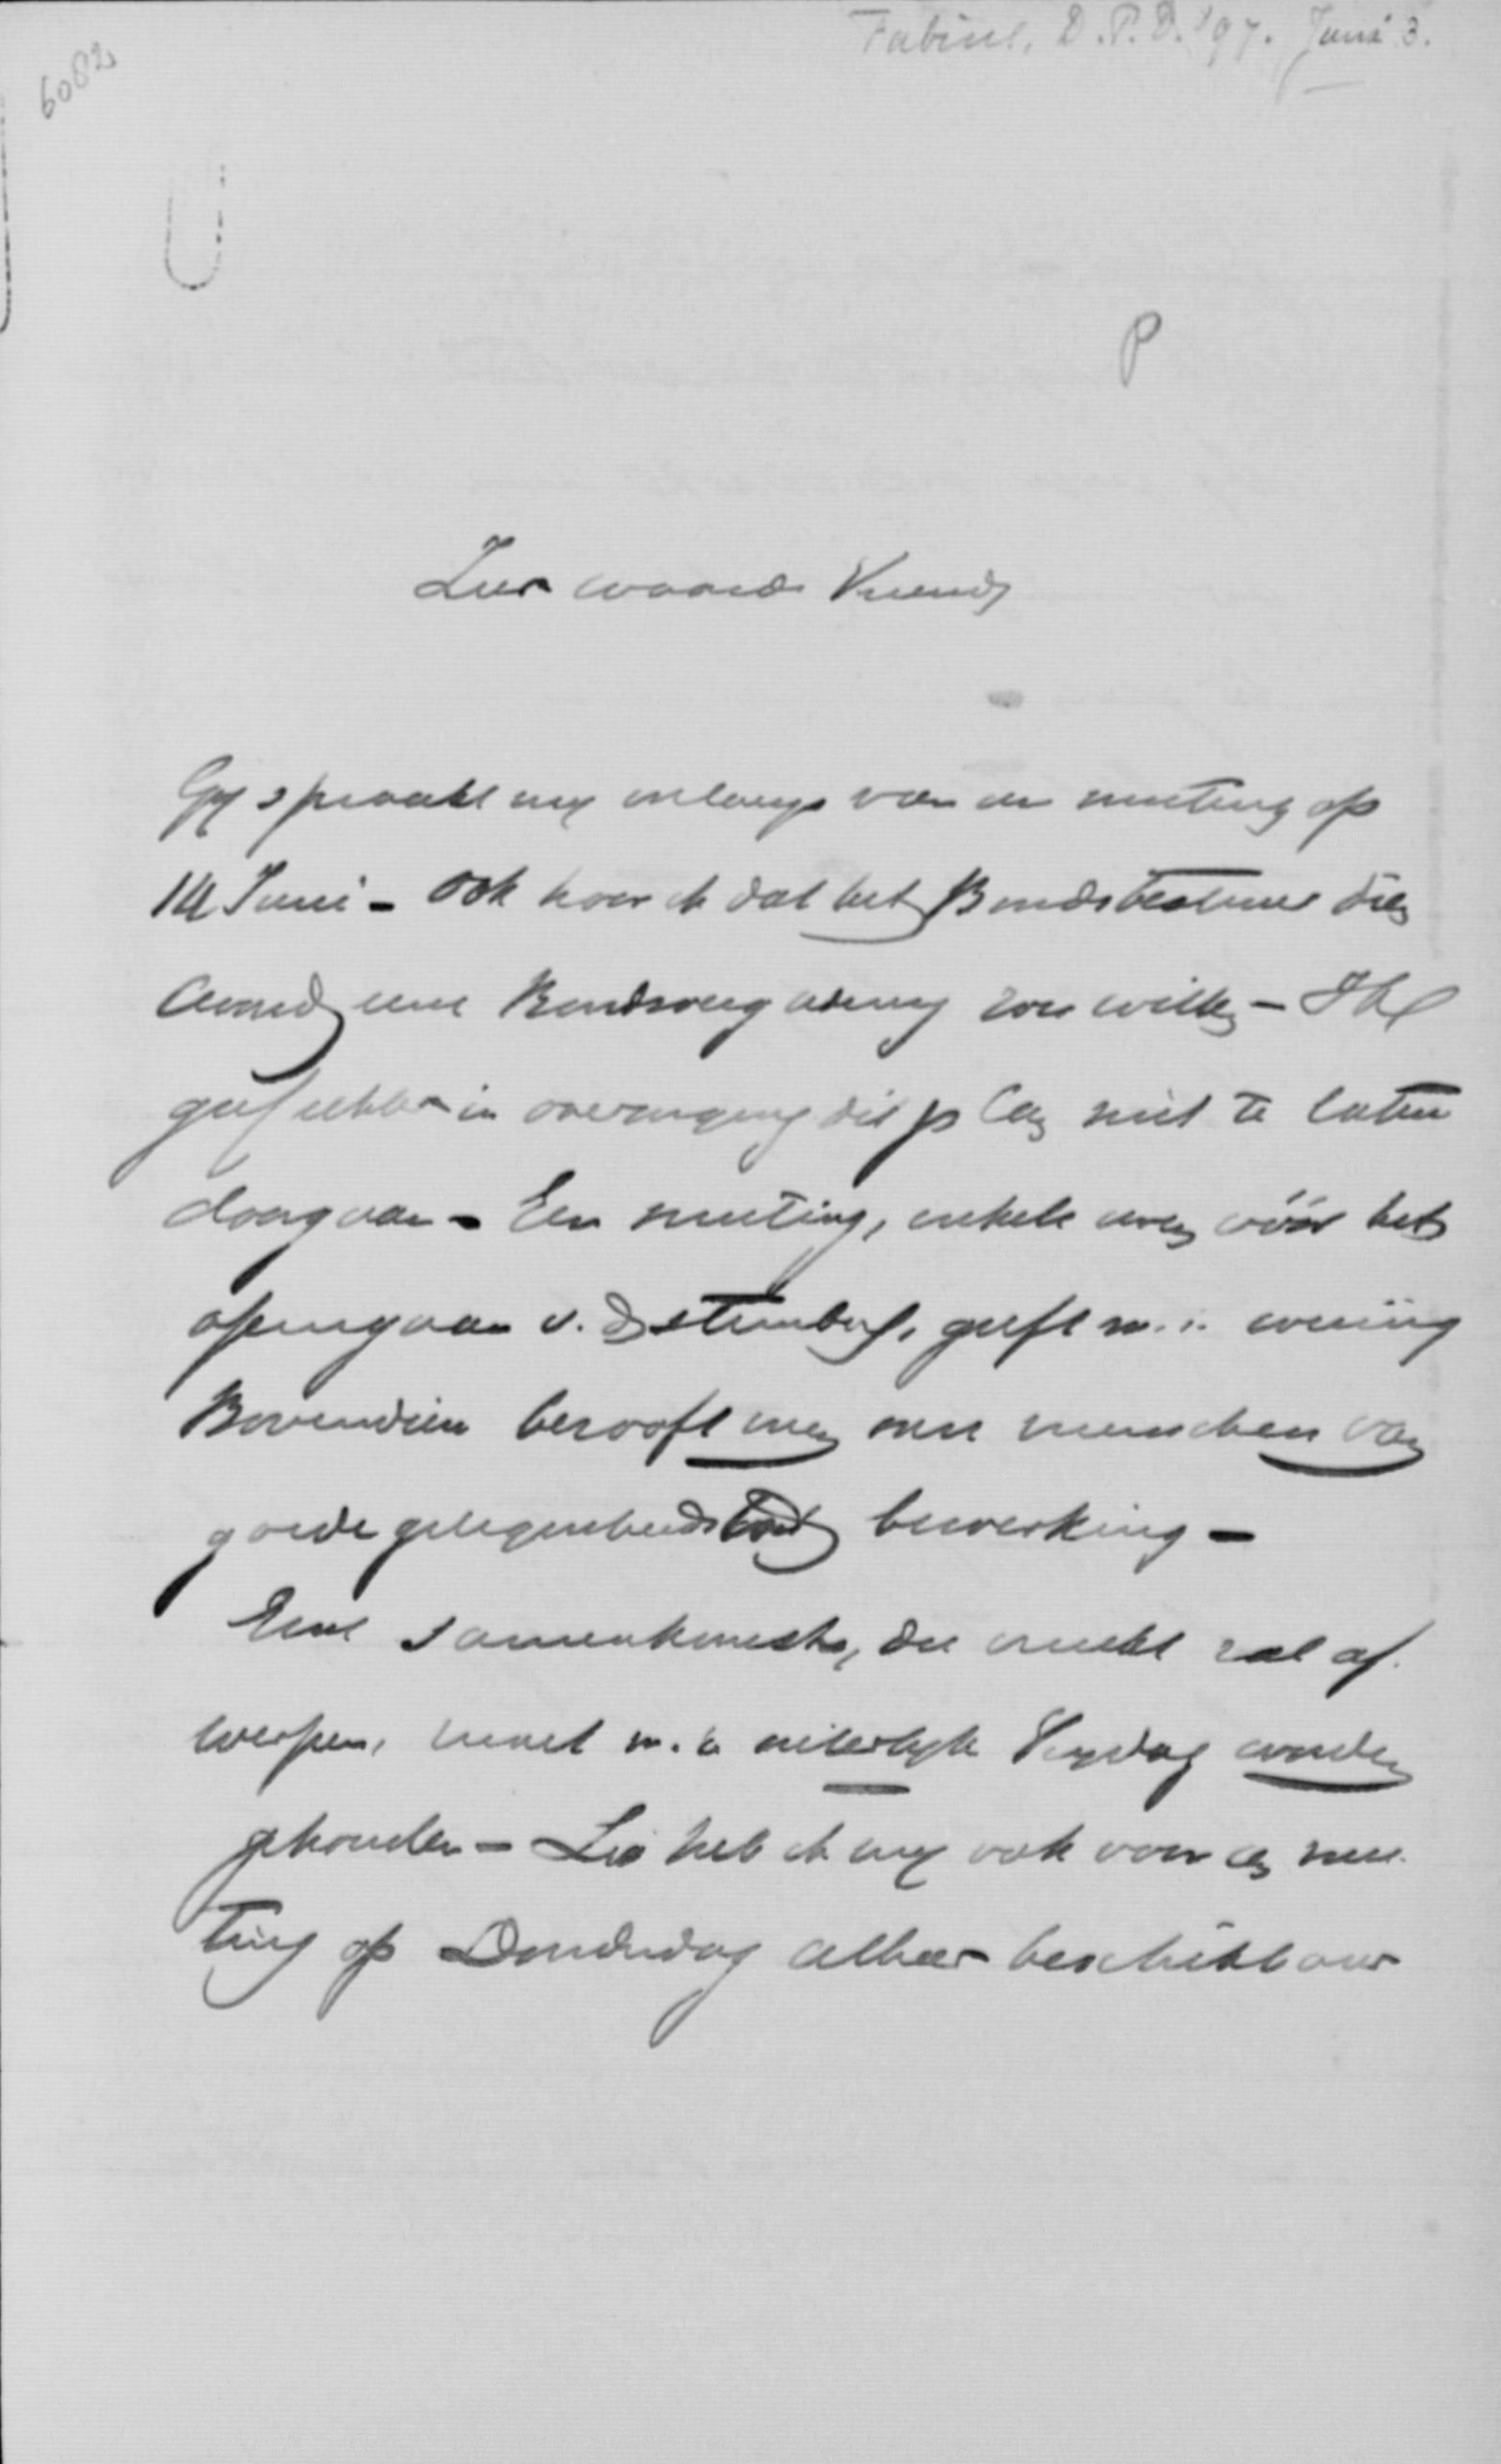 Fabius, D.P.D. '97. Juni 3.
6082
P
Zeer waarde Vriend
Gij spraakt mij onlangs van een meeting op
14 Juni - Ook hoor ik dat het Bondsbestuur dien
avond eene Bondsvergadering zou willen - Ik
geef echter in overweging dit plan niet te laten
doorgaan - Een meeting, enkele uren vóór het
opengaan v. d. stembus, geeft m.i. weinig
Bovendien berooft men onze menschen van
goede gelegenheid tot bewerking -
Eene samenkomst, die vrucht zal af-
werpen, moet m.i. uiterlijk Vrijdag worden
gehouden - Zoo heb ik mij ook voor een mee-
ting op Donderdag alhier beschikbaar